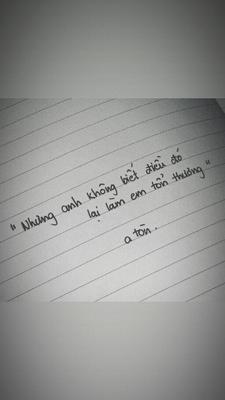 "Nhưng anh không biết điều đó
lại làm em tổn thương"
a tồn.